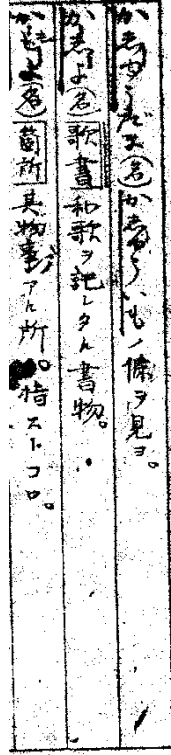 かしゅうだま(名)かしゅういも ノ條ヲ見ヨ。
かしょ(名)歌書 和歌ヲ記シタル書物。
かしょ(名)箇所 其物事ノアル所。指ストコロ。